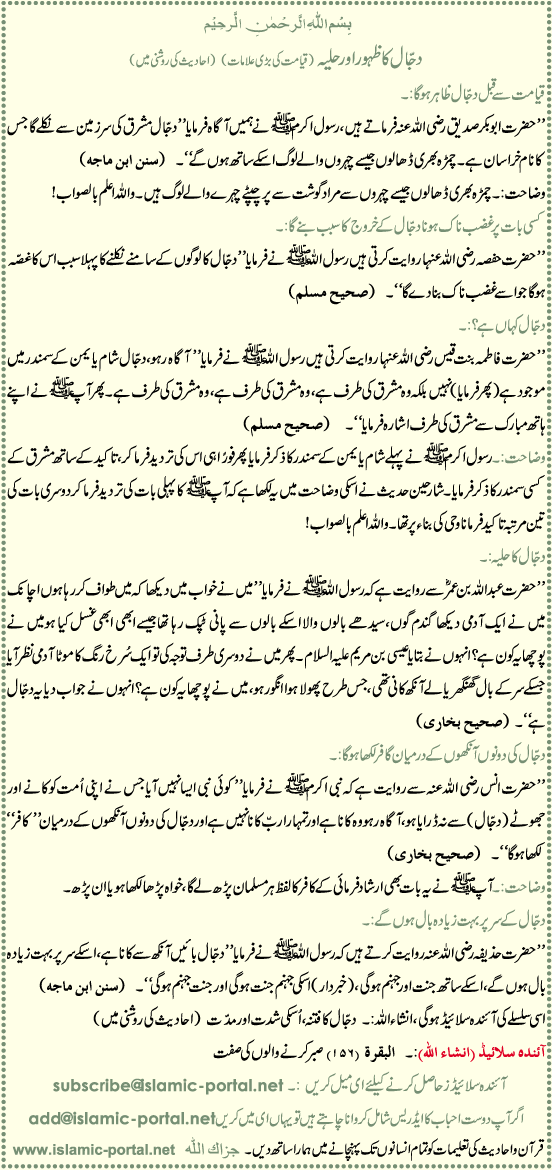 بِسْمِ اللهِ الرَّحْمٰنِ الرَّحِيْم
دجّال کا ظہور اور حلیہ (قیامت کی بڑی علامات) (احادیث کی روشنی میں)
قیامت سے قبل دجّال ظاہر ہوگا:۔
’’حضرت ابو بکر صدیق رضی اللہ عنہ فرماتے ہیں، رسول اکرم ﷺ نے ہمیں آگاہ فرمایا’’دجّال مشرق کی سرزمین سے نکلے گا جس
کا نام خراسان ہے۔ چمڑہ بھری ڈھالوں جیسے چہروں والے لوگ اسکے ساتھ ہوں گے‘‘۔ (سنن ابن ماجه)
وضاحت:۔ چمڑہ بھری ڈھالوں جیسے چہروں سے مراد گوشت سے پر چپٹے چہرے والے لوگ ہیں۔ واللہ اعلم بالصواب!
کسی بات پر غضب ناک ہونا دجّال کے خروج کا سبب بنے گا:۔
’’حضرت حفصہ رضی اللہ عنہا روایت کرتی ہیں رسول اللہ ﷺ نے فرمایا’’دجّال کا لوگوں کے سامنے نکلنے کا پہلا سبب اس کا غصّہ
ہوگا جو اسے غضب ناک بنا دے گا‘‘۔ (صحیح مسلم)
دجّال کہاں ہے؟:۔
’’حضرت فاطمہ بنت قیس رضی اللہ عنہا روایت کرتی ہیں رسول اللہ ﷺ نے فرمایا’’آگاہ رہو، دجّال شام یا یمن کے سمندر میں
موجود ہے (پھر فرمایا) نہیں بلکہ وہ مشرق کی طرف ہے، وہ مشرق کی طرف ہے، وہ مشرق کی طرف ہے۔ پھر آپ ﷺ نے اپنے
ہاتھ مبارک سے مشرق کی طرف اشارہ فرمایا‘‘۔ (صحیح مسلم)
وضاحت:۔ رسول اکرم ﷺ نے پہلے شام یا یمن کے سمندر کا ذکر فرمایا پھر فوراً ہی اس کی تردید فرما کر، تاکید کے ساتھ مشرق کے
کسی سمندر کا ذکر فرمایا۔ شارحین حدیث نے اسکی وضاحت میں یہ لکھا ہے کہ آپ ﷺ کا پہلی بات کی تردید فرما کر دوسری بات کی
تین مرتبہ تاکید فرمانا وحی کی بناء پر تھا۔ واللہ اعلم بالصواب!
دجّال کا حلیہ:۔
’’حضرت عبداللہ بن عمرؓ سے روایت ہے کہ رسول اللہ ﷺ نے فرمایا’’میں نے خواب میں دیکھا کہ میں طواف کر رہا ہوں اچانک
میں نے ایک آدمی دیکھا گندم گوں، سیدھے بالوں والا اسکے بالوں سے پانی ٹپک رہا تھا جیسے ابھی ابھی غسل کیا ہو میں نے
پوچھا یہ کون ہے؟ انہوں نے بتایا عیسی بن مریم علیہ السلام۔ پھر میں نے دوسری طرف توجہ کی تو ایک سُرخ رنگ کا موٹا آدمی نظر آیا
جسکے سر کے بال گھنگھریالے آنکھ کانی تھی، جس طرح پھولا ہوا انگور ہو، میں نے پوچھا یہ کون ہے؟ انہوں نے جواب دیا یہ دجّال
ہے‘‘۔ (صحیح بخاری)
دجّال کی دونوں آنکھوں کے درمیان کافر لکھا ہوگا:۔
’’حضرت انس رضی اللہ عنہ سے روایت ہے کہ نبی اکرم ﷺ نے فرمایا’’کوئی نبی ایسا نہیں آیا جس نے اپنی اُمت کو کانے اور
جھوٹے (دجّال) سے نہ ڈرایا ہو، آگاہ رہو وہ کانا ہے اور تمہارا ربّ کانا نہیں ہے اور دجّال کی دونوں آنکھوں کے درمیان’’کافر‘‘
لکھا ہوگا‘‘۔ (صحیح بخاری)
وضاحت:۔ آپ ﷺ نے یہ بات بھی ارشاد فرمائی کے کافر کا لفظ ہر مسلمان پڑھ لے گا، خواہ پڑھا لکھا ہو یا ان پڑھ۔
دجّال کے سر پر بہت زیادہ بال ہوں گے:۔
’’حضرت حذیفہ رضی اللہ عنہ روایت کرتے ہیں کہ رسول اللہ ﷺ نے فرمایا’’دجّال بائیں آنکھ سے کانا ہے، اسکے سر پر بہت زیادہ
بال ہوں گے، اسکے ساتھ جنت اور جہنم ہوگی، (خبردار) اسکی جہنم جنت ہوگی اور جنت جہنم ہوگی‘‘۔ (سنن ابن ماجه)
اسی سلسلے کی آئندہ سلائیڈ ہوگی، انشاء اللہ:۔ دجّال کا فتنہ، اُسکی شدت اور مدّت (احادیث کی روشنی میں)
آئندہ سلائیڈ (انشاء الله):۔ البقرة (١٥٦) صبر کرنے والوں کی صفت
آئندہ سلائیڈز حاصل کرنے کیلئے ای میل کریں :۔ subscribe@islamic-portal.net
اگر آپ دوست احباب کا ایڈریس شامل کروانا چاہتے ہیں تو یہاں ای میں کریں add@islamic-portal.net
قرآن و احادیث کی تعلیمات کو تمام انسانوں تک پہنچانے میں ہمارا ساتھ دیں۔ جزاك الله www.islamic-portal.net